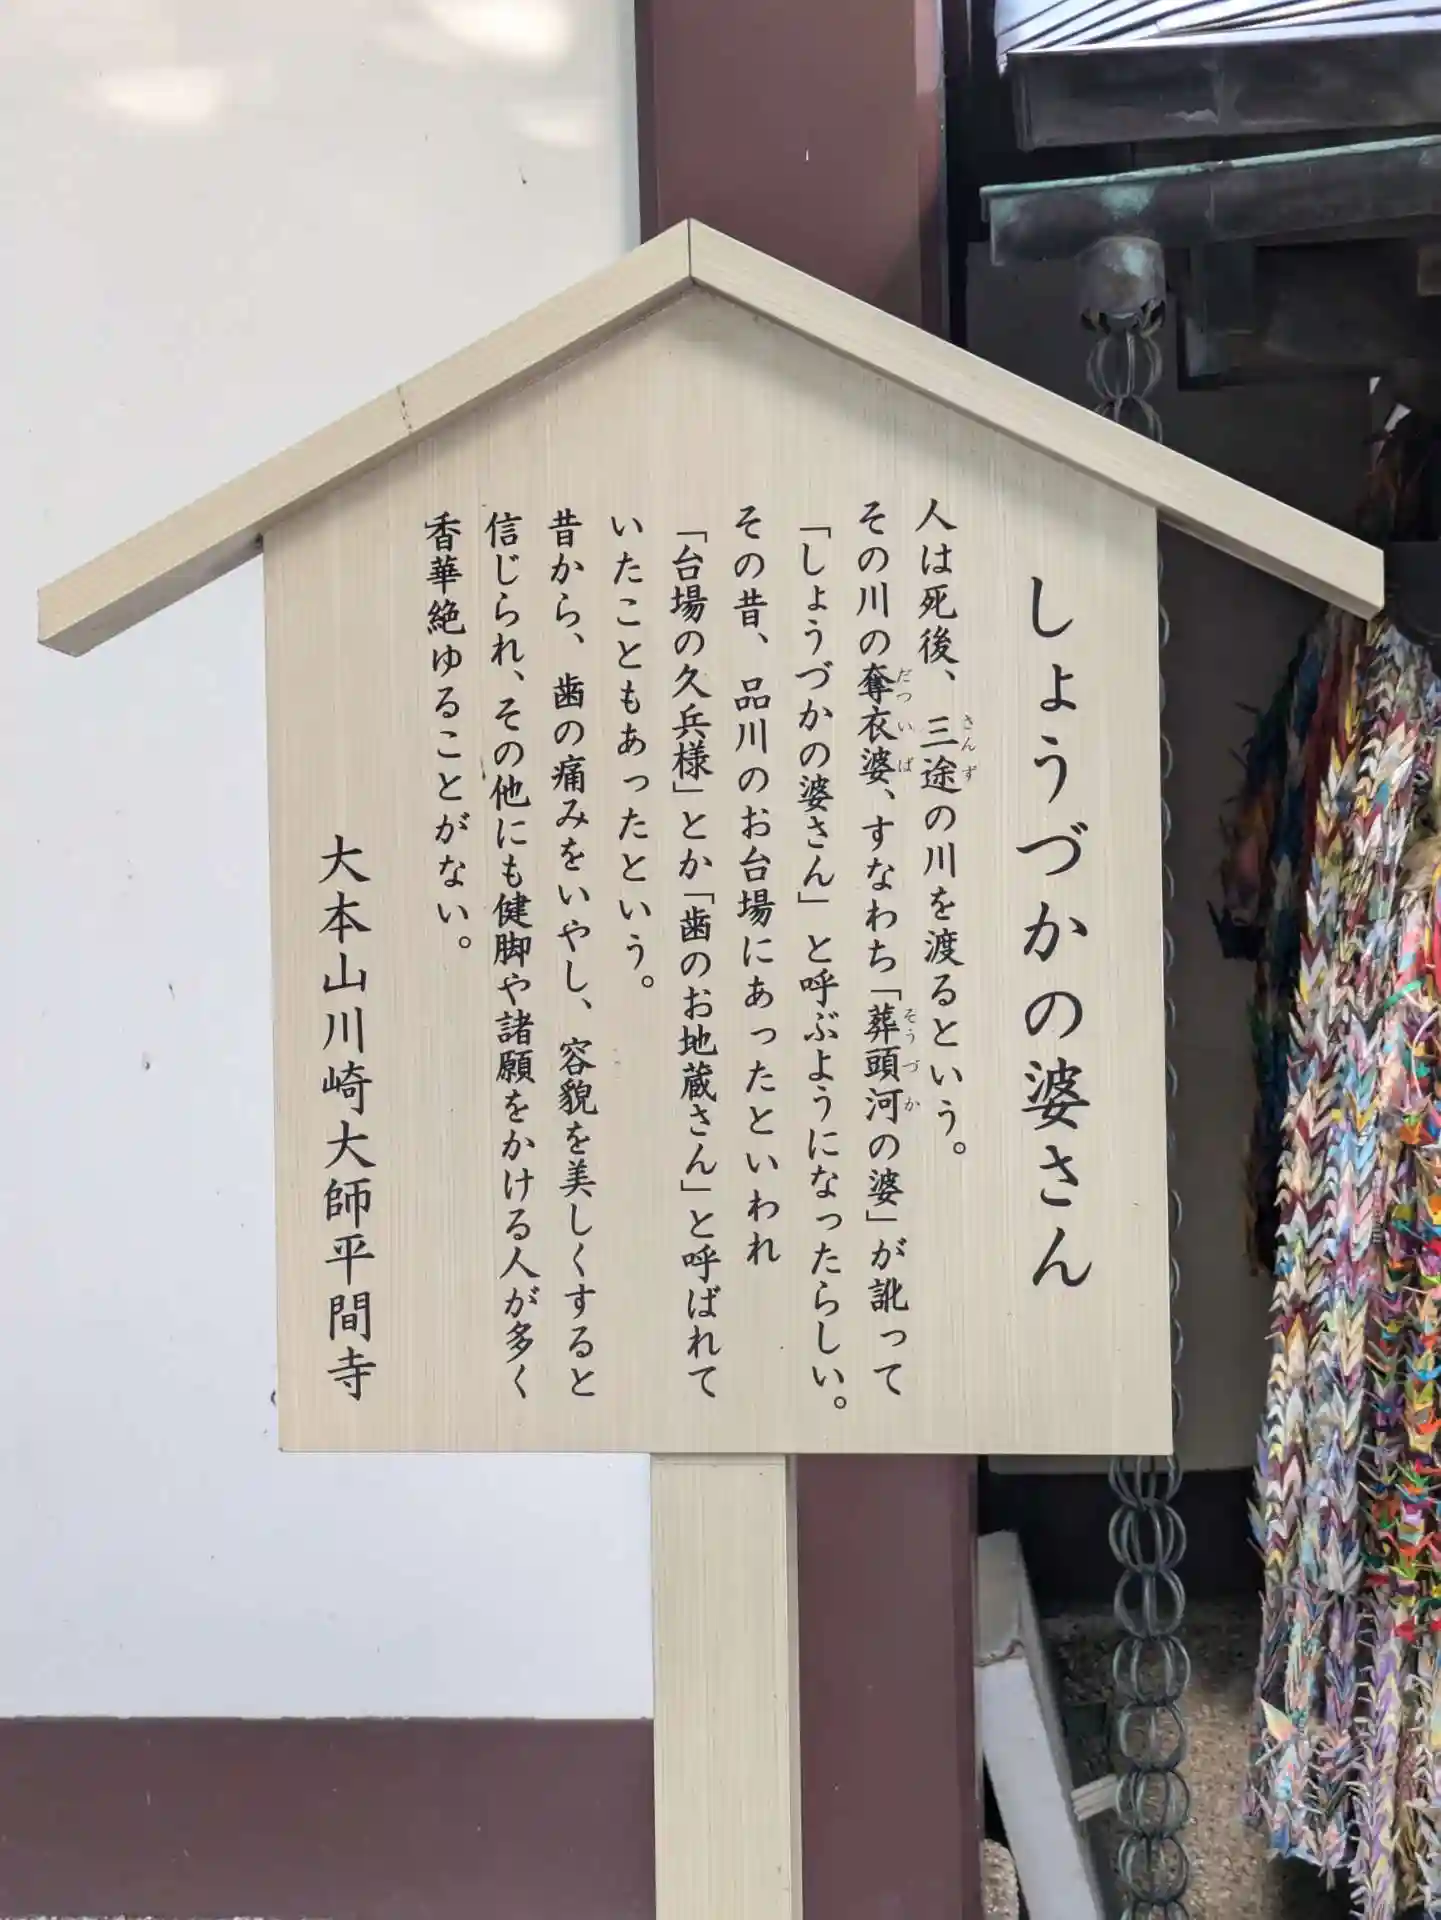 しょうづかの婆さん
人は死後、三途の川を渡るという。
さんず
その川の奪衣婆、すなわち「葬頭河の婆」が訛って
だついば
そうづか
「しょうづかの婆さん」と呼ぶようになったらしい。
その昔、品川のお台場にあったといわれ
「台場の久兵様」とか「歯のお地蔵さん」と呼ばれて
いたこともあったという。
昔から、歯の痛みをいやし、容貌を美しくすると
信じられ、その他にも健脚や諸願をかける人が多く
香華絶ゆることがない。
大本山川崎大師平間寺